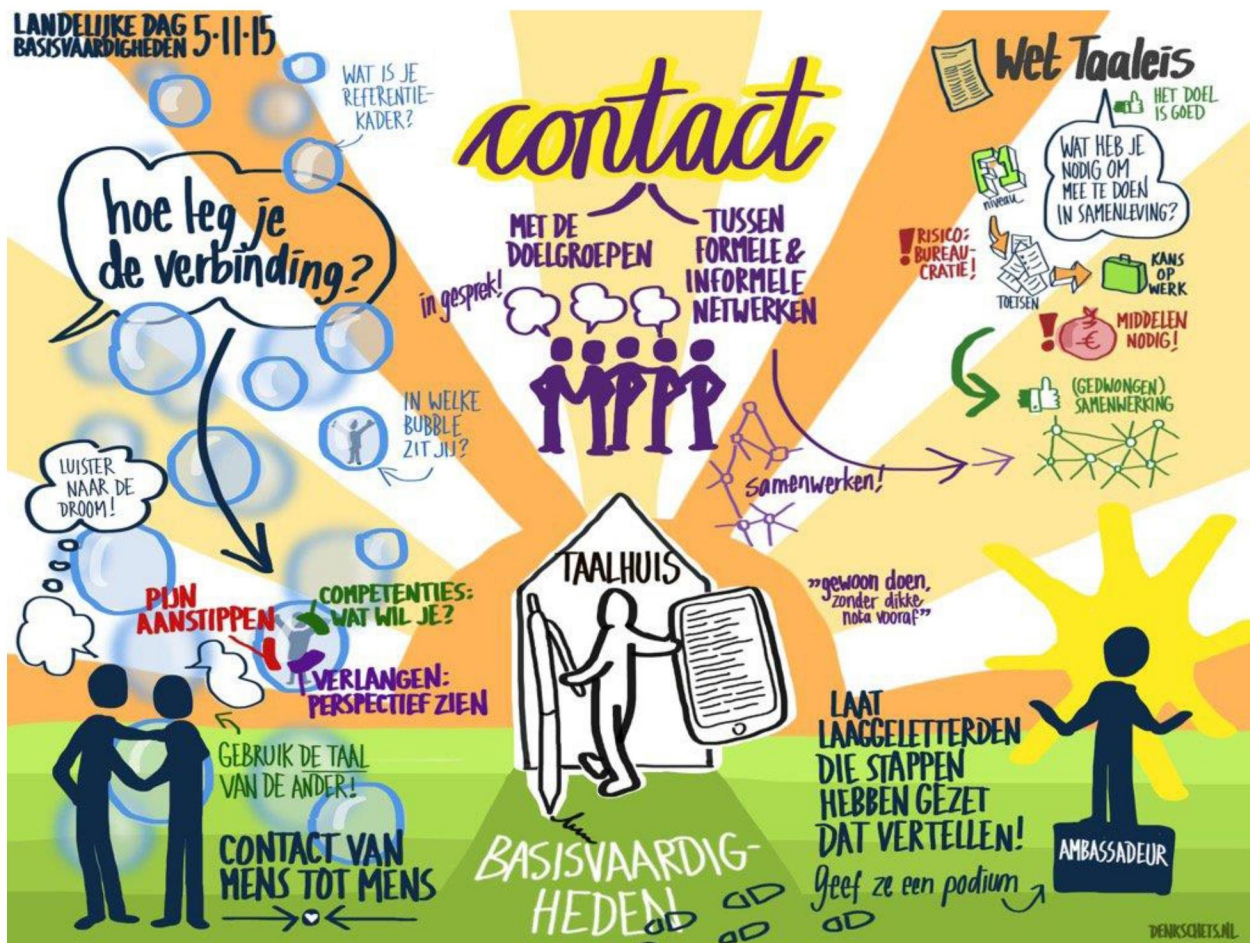 LANDELIJKE DAG
BASISVAARDIGHEDEN 5·11·15
WAT IS JE
REFERENTIE-
KADER?
hoe leg je
de verbinding?
IN WELKE
BUBBLE
ZIT JIJ?
LUISTER
NAAR DE
DROOM!
PIJN
AANSTIPPEN
COMPETENTIES:
WAT WIL JE?
VERLANGEN:
PERSPECTIEF ZIEN
GEBRUIK DE TAAL
VAN DE ANDER!
CONTACT VAN
MENS TOT MENS
contact
MET DE
DOELGROEPEN
in gesprek!
TUSSEN
FORMELE &
INFORMELE
NETWERKEN
Samenwerken!
TAALHUIS
BASISVAARDIG-
HEDEN
Wet Taaleis
HET DOEL
IS GOED
WAT HEB JE
NODIG OM
MEE TE DOEN
IN SAMENLEVING?
F1
niveau
! RISICO:
BUREAU-
CRATIE!
TOETSEN
KANS
OP
WERK
! €
MIDDELEN
NODIG!
(GEDWONGEN)
SAMENWERKING
"gewoon doen,
zonder dikke
nota vooraf"
LAAT
LAAGGELETTERDEN
DIE STAPPEN
HEBBEN GEZET
DAT VERTELLEN!
Geef ze een podium
AMBASSADEUR
DENKSCHETS.NL